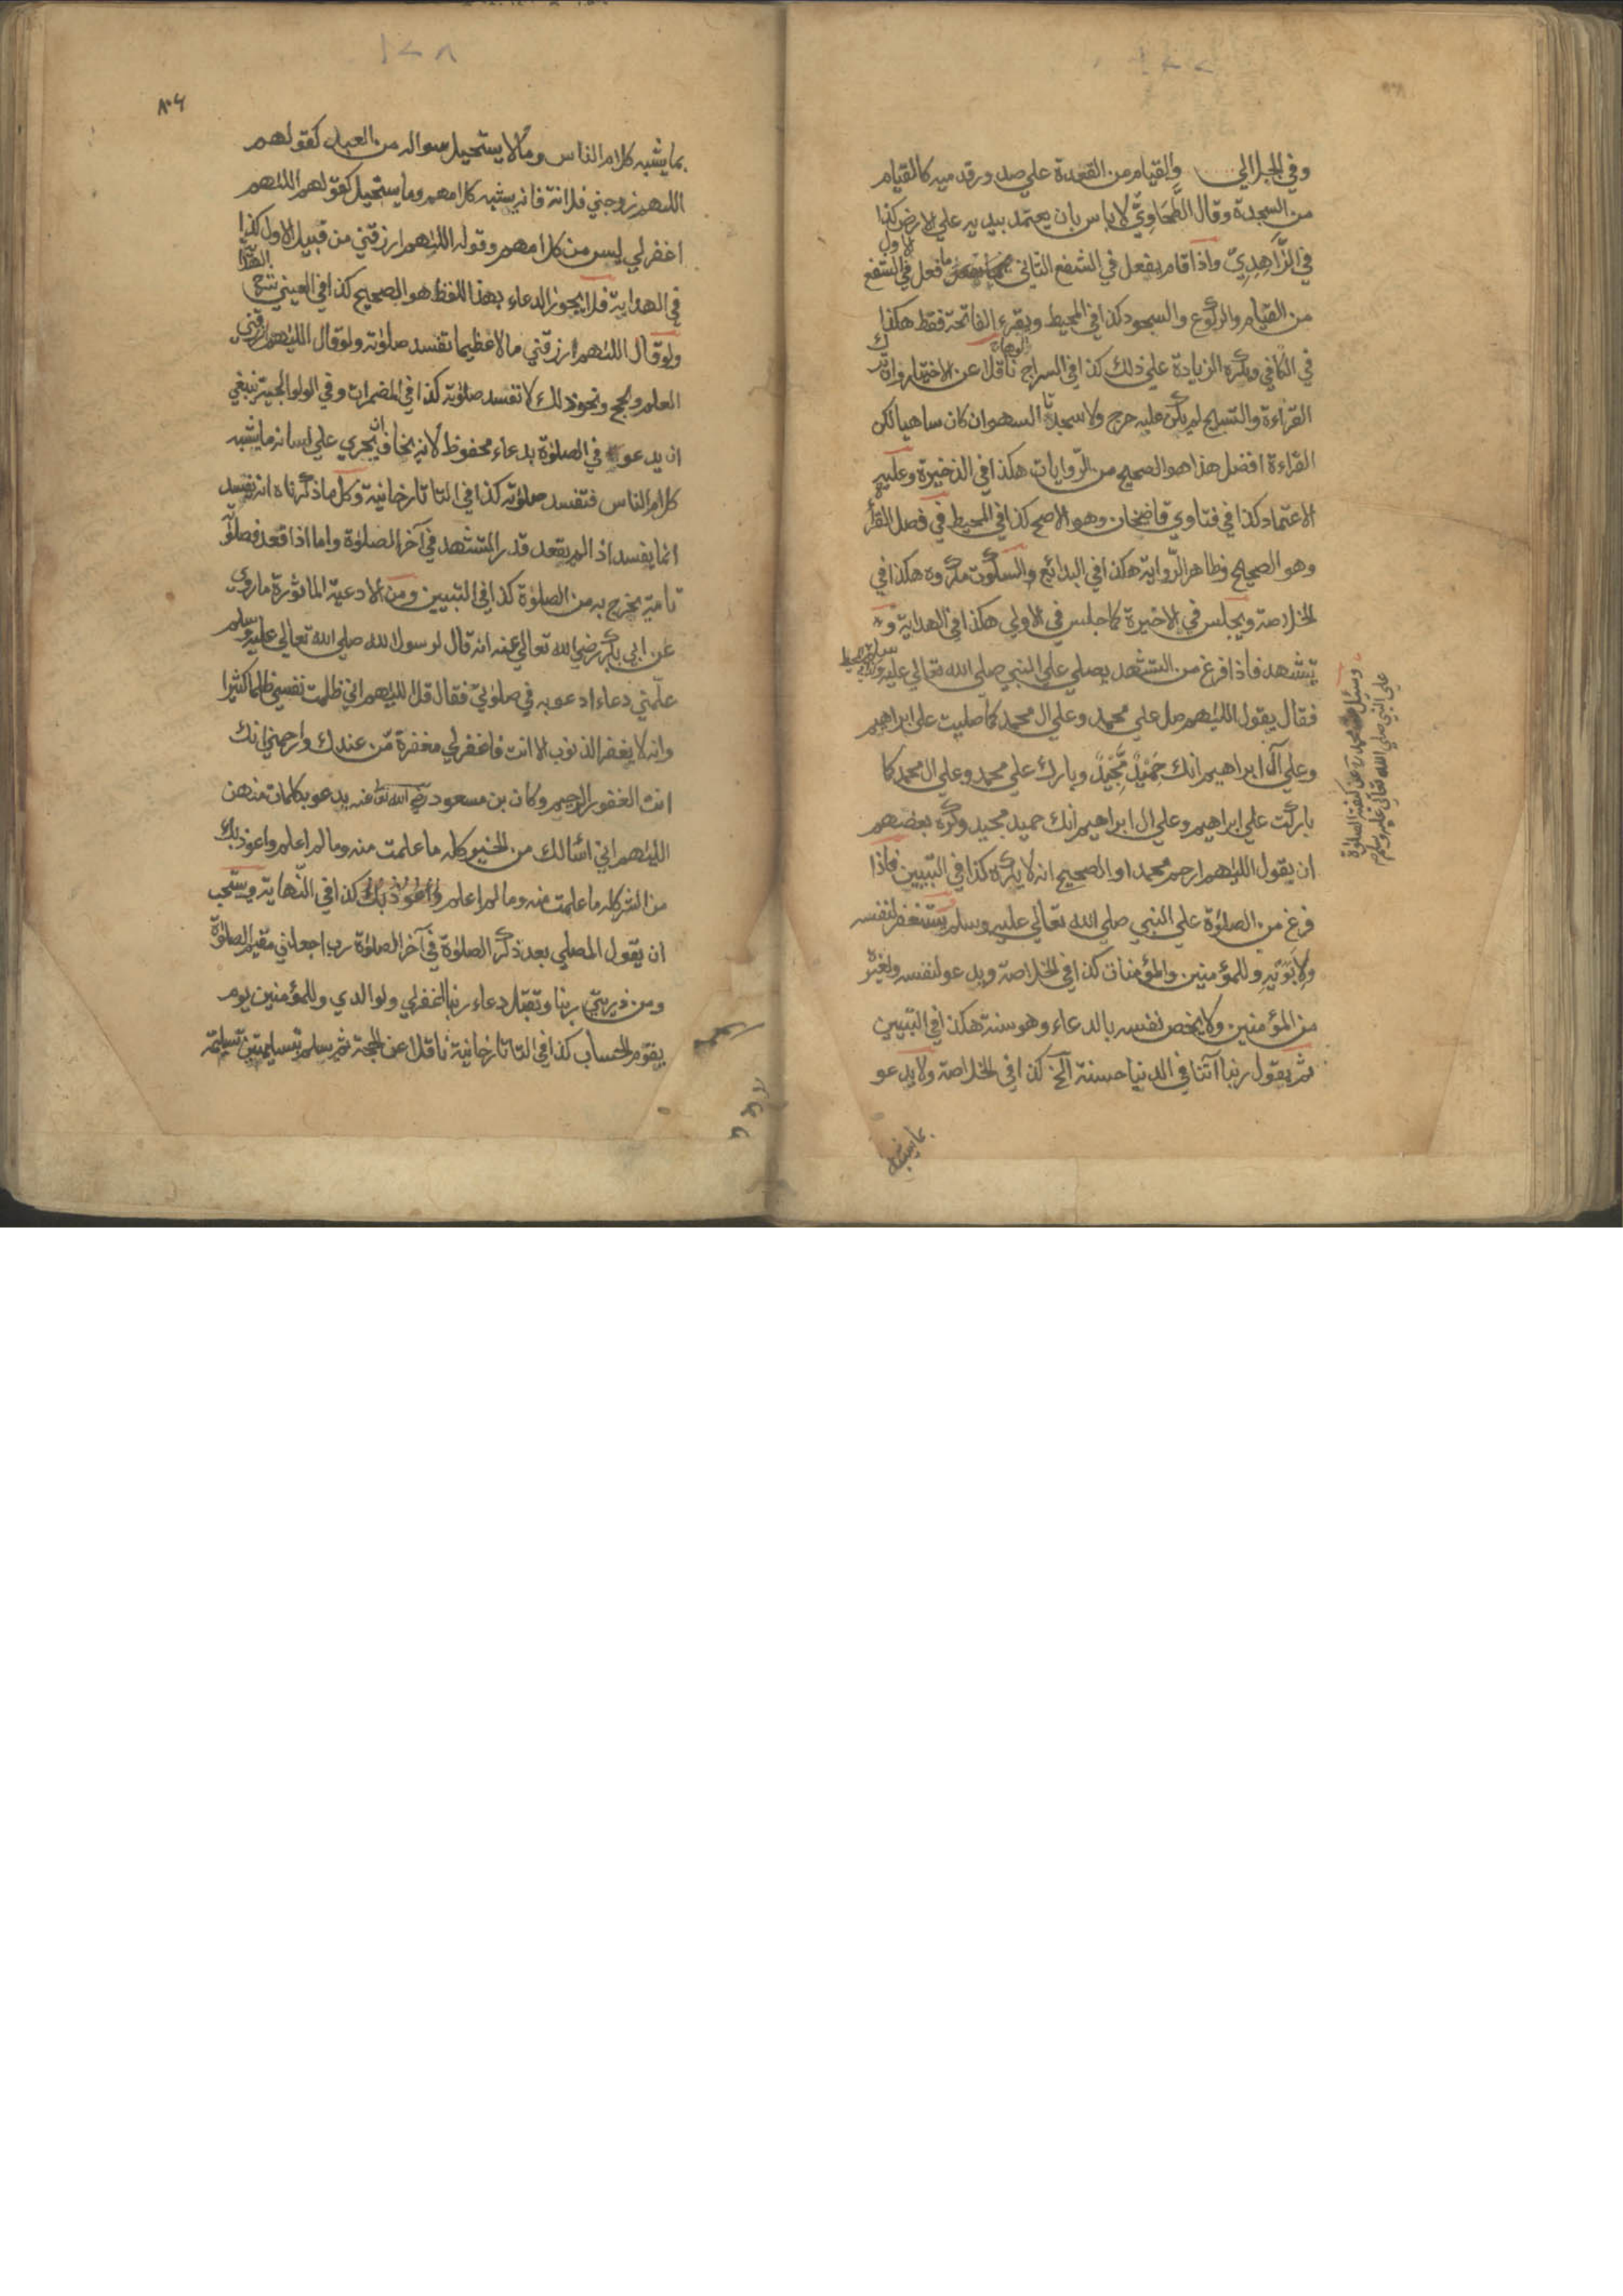 ١٢٧
وفي الجلابي والقيام من القعدة علي صدور قدميه كالقيام
من السجدة وقال الطَّحَاوِيّ لا باس بان يعتمد بيديه علي الارض كذا
في الزَّاهِدِيّ واذا قام يفعل في الشفع الثاني ما فعل في الشفع الاول
من القيام والركوع والسجود كذا في المحيط ويقرء الفاتحة فقط هكذا
في الكافي ويكره الزيادة علي ذلك كذا في السراج الوهاج ناقلا عن الاختيار وان ترك
القراءة والتسبيح لم يكن عليه حرج ولا سجدتا السهو ان كان ساهيا لكن
القراءة افضل هذا هو الصحيح من الرّوايات هكذا في الذخيرة وعليه
الاعتماد كذا في فتاوي قاضيخان وهو الاصح كذا في المحيط في فصل القرأة
وهو الصحيح وظاهر الرّواية هكذا في البدائع والسكوت مكروه هكذا في
الخلاصة ويجلس في الاخيرة كما جلس في الاولي هكذا في الهداية و
يتشهد فاذا فرغ من التشهد يصلي علي النبي صلي الله تعالي عليه وسلم في المحيط
وسئل محمد رح عن كيفية الصلوة
علي النبي صلي الله تعالي عليه وسلم
فقال يقول اللهم صل علي محمد وعلي ال محمد كما صليت علي ابراهيم
وعلي آل ابراهيم انك حَمِيْدٌ مَّجِيْدٌ وبارك علي محمد وعلي ال محمد كما
باركت علي ابراهيم وعلي ال ابراهيم انك حميد مجيد وكره بعضهم
ان يقول اللهم ارحم محمدا و الصحيح انه لا يكره كذا في التبيين فاذا
فرغ من الصلوة علي النبي صلي الله تعالي عليه وسلم يستغفر لنفسه
ولابَوَيْهِ وللمؤمنين والمؤمنات كذا في الخلاصة ويدعو لنفسه ولغيره
من المؤمنين ولا يخص نفسه بالدعاء وهو سنة هكذا في التبيين
ثم يقول ربنا آتنا في الدنيا حسنة الخ كذا في الخلاصة ولا يدعو
بما يشبه
١٢٨
بما يشبه كلام الناس وما لا يستحيل سواله من العباد كقولهم
اللهم زوجني فلانة فانه يشبه كلامهم وما يستحيل كقولهم اللهم
اغفر لي ليس من كلامهم وقوله اللهم ارزقني من قبيل الاول كذا
في الهداية فلا يجوز الدعاء بهذا اللفظ هو الصحيح كذا في العيني شرح الهداية
ولو قال اللهم ارزقني مالا عظيما تفسد صلوته ولو قال اللهم ارزقني
العلم والحج ونحو ذلك لا تفسد صلوته كذا في المضمرات وفي الولوالجية ينبغي
ان يدعو في الصلوة بدعاء محفوظ لانه يخاف ان يجري علي لسانه ما يشبه
كلام الناس فتفسد صلوته كذا في التاتارخانية وكل ما ذكرناه انه يفسد
انما يفسد اذا لم يقعد قدر التشهد في آخر الصلوة واما اذا قعد فصلوته
تامة يخرج به من الصلوة كذا في التبيين ومن الادعية الماثورة ما روي
عن ابي بكر رضي الله تعالي عنه انه قال لرسول الله صلي الله تعالي عليه وسلم
علّمني دعاء ادعو به في صلوتي فقال قل اللهم اني ظلمت نفسي ظلما كثيرا
وانه لا يغفر الذنوب الا انت فاغفر لي مغفرة مّن عندك وارحمني انك
انت الغفور الرحيم وكان بن مسعود رضي الله تعا عنه يدعو بكلمات منهن
اللهم اني اسألك من الخير كله ما علمت منه وما لم اعلم واعوذ بك
من الشر كله ما علمت منه وما لم اعلم كذا في النّهاية ويستحب
ان يقول المصلي بعد ذكر الصلوة في آخر الصلوة رب اجعلني مقيم الصلوة
ومن ذريتي ربنا وتقبل دعاء ربنا اغفر لي ولوالدي وللمؤمنين يوم
يقوم الحساب كذا في التاتارخانية ناقلا عن الحجة ثم يسلم تسليمتين تسليمة